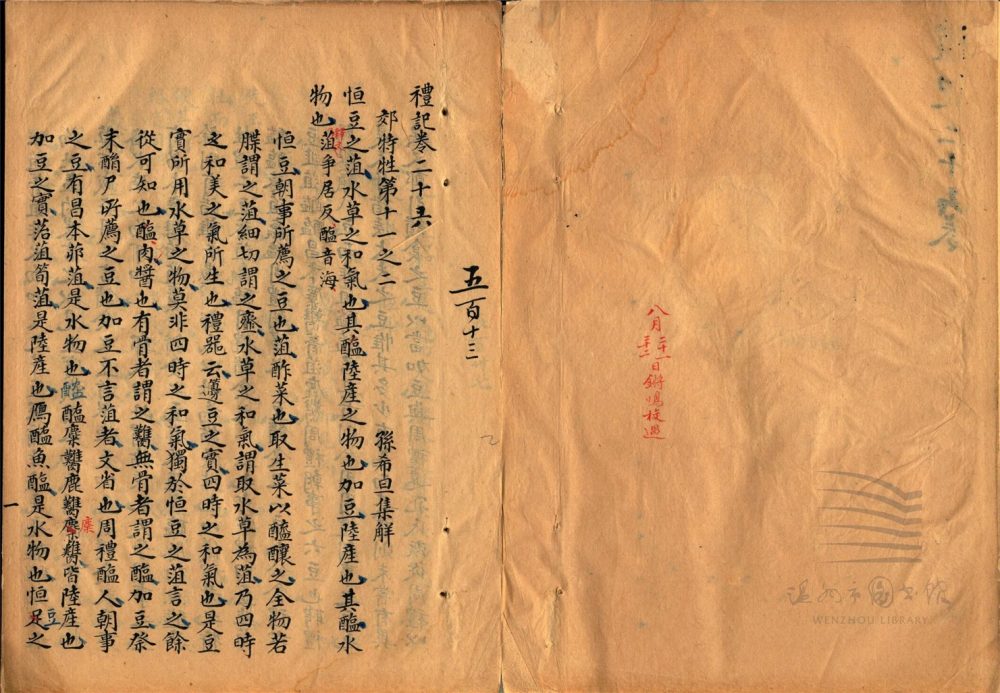 八月二十一日鏘鳴校過
二十二
温州市图书馆
WENZHOU LIBRARY
五百十三
禮記卷二十六
郊特牲第十一之二 孫希旦集解
恒豆之菹水草之和氣也其醢陸產之物也加豆陸產也其醢水
物也菹爭居反醢音海
恒豆朝事所薦之豆也菹酢菜也取生菜以醯釀之全物若
牒謂之菹細切謂之齏水草之和氣謂取水草為菹乃四時
之和美之氣所生也禮器云籩豆之實四時之和氣也是豆
實所用水草之物莫非四時之和氣獨於恒豆之菹言之餘
從可知也醢肉醬也有骨者謂之臡無骨者謂之醢加豆祭
末酳尸所薦之豆也加豆不言菹者文省也周禮醢人朝事
之豆有昌本菲菹是水物也醓醢麋臡鹿臡麇臡皆陸產也
加豆之實菭菹筍菹是陸產也鴈醢魚醢是水物也恒豆之
一